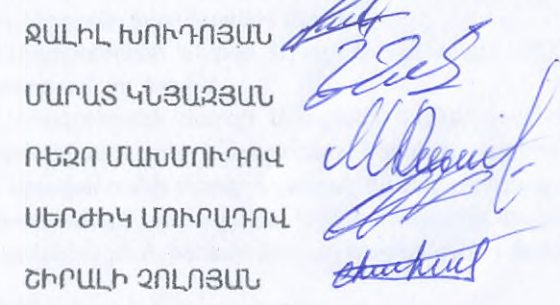 ՋԱԼԻԼ ԽՈՒԴՈՅԱՆ
ՄԱՐԱՏ ԿՆՅԱԶՅԱՆ
ՌԵԶՈ ՄԱԽՄՈՒԴՈՎ
ՍԵՐԺԻԿ ՄՈՒՐԱԴՈՎ
ՇԻՐԱԼԻ ՉՈԼՈՅԱՆ